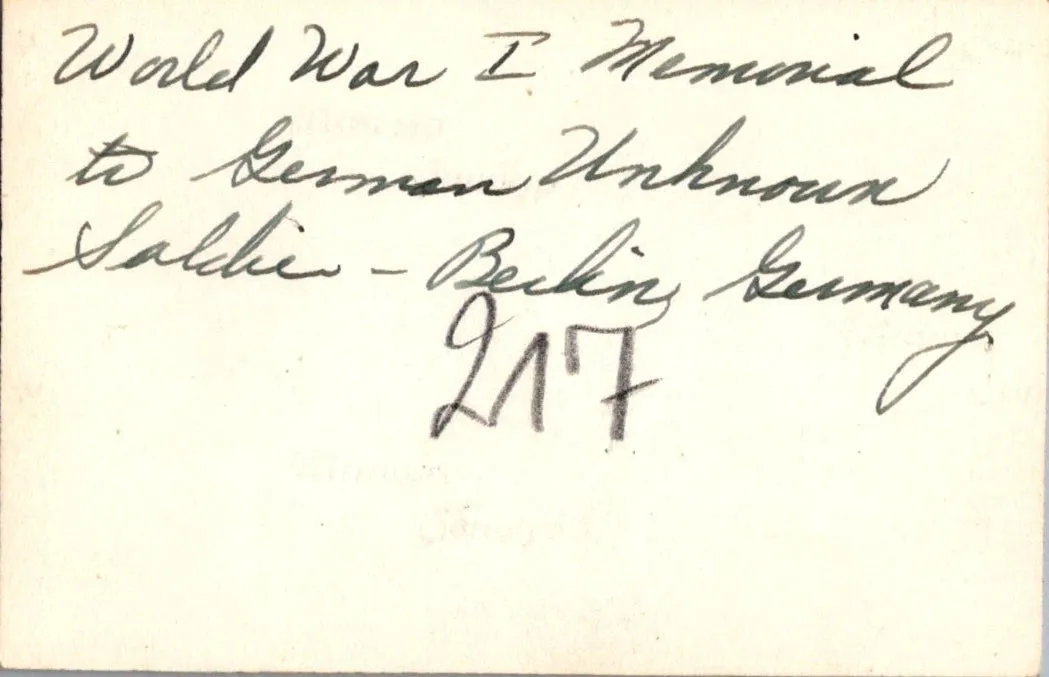 World War I Memorial
to German Unknown
Soldier - Berlin, Germany
217